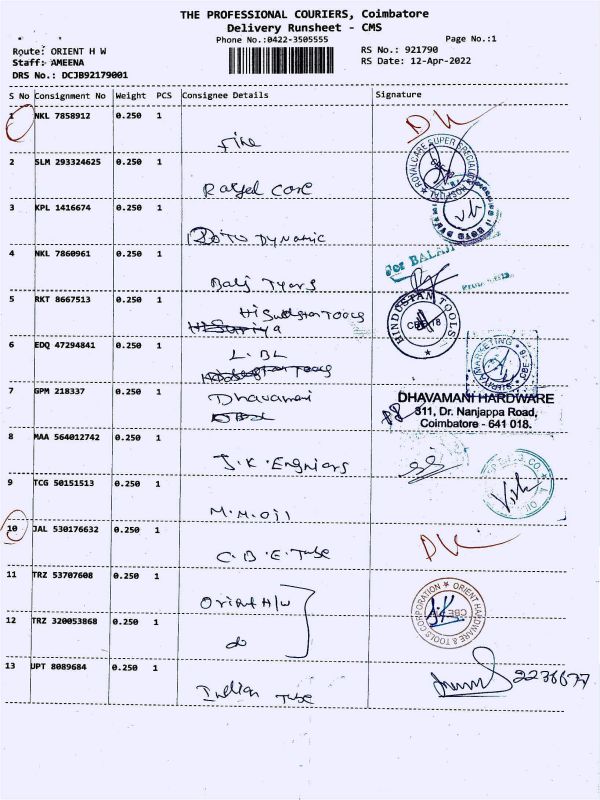 THE PROFESSIONAL COURIERS, Coimbatore
Delivery Runsheet - CMS
Phone No.:0422-3505555
Page No.:1
Route: ORIENT H W
RS No.: 921790
Staff: AMEENA
RS Date: 12-Apr-2022
DRS No.: DCJB92179001
S No Consignment No Weight PCS Consignee Details Signature
1 NKL 7858912 0.250 1
DK
2 SLM 293324625 0.250 1
ROYALCARE SUPER SPECIALITY HOSPITAL
3 KPL 1416674 0.250 1
DYNAMIC
4 NKL 7860961 0.250 1
For BALAJI
Balj Tyers
5 RKT 8667513 0.250 1
HINDUSTAN TOOLS
CBE-18
6 EDQ 47294841 0.250 1
L.BL
MARKETING
7 GPM 218337 0.250 1
Dhavamani
DHAVAMANI HARDWARE
311, Dr. Nanjappa Road,
Coimbatore - 641 018.
8 MAA 564012742 0.250 1
J.K.Engniars
9 TCG 50151513 0.250 1
M.M.Oil
10 JAL 530176632 0.250 1
C.B.E.Tube
DK
11 TRZ 53707608 0.250 1
Orient H/W
ORIENT HARDWARE & TOOLS CORPORATION
CBE
12 TRZ 320053868 0.250 1
do
13 UPT 8089684 0.250 1
Indian Tube
2236677